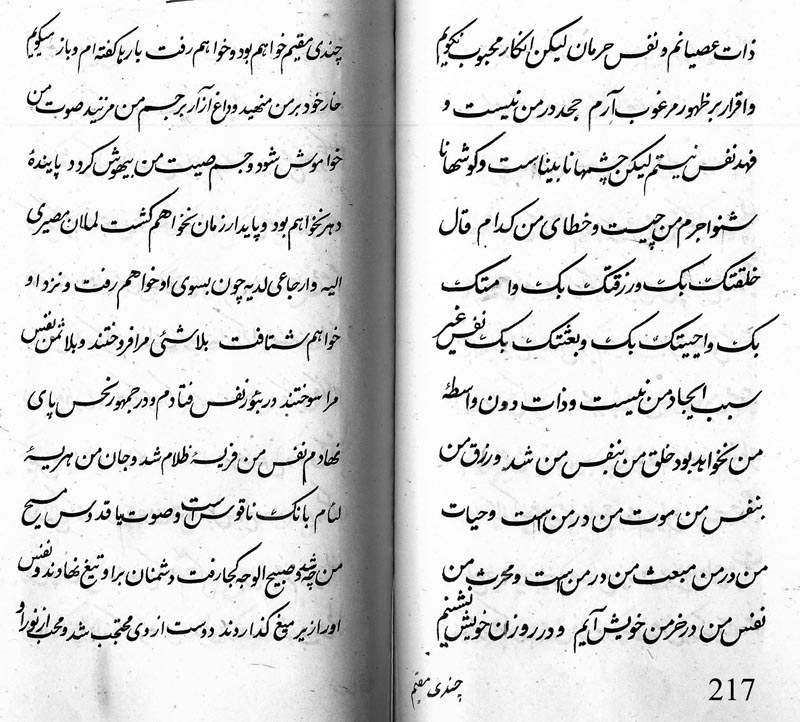 ذات عصیانم و نفس حرمان لیکن انکار محبوب نگویم
و اقرار بر ظهور مرغوب آرم جحد در من نیست و
فهد نفس نیستم لیکن چشمها نابیناست و گوشها نا
شنوا جرم من چیست و خطای من کدام قال
خلقتک بک و رزقتک بک و امتک
بک و احییتک بک و بعثتک بک نفس غیر
سبب ایجاد من نیست و ذات دون واسطهٔ
من نخواهد بود خلق من بنفس من شد و رزق من
بنفس من موت من در من است و حیات
من در من مبعث من در من است و محرث من
نفس من در خرمن خویش آیم و در روزن خویش نشینم
چندی مقیم
217
چندی مقیم خواهم بود و خواهم رفت بارها گفته ام و باز میگویم
خار خود بر من منهید و داغ آزار بر جسم من مزنید صوت من
خواموش شود و جسم صیت من بیهوش گردد پایندهٔ
دهر نخواهم بود و پایدار زمان نخواهم گشت لملان مصیری
الیه و ارجاعی لدیه چون بسوی او خواهم رفت و نزد او
خواهم شتافت بلاشئی مرا فروختند و بلا ثمن نفس
مرا سوختند در بئر نفس فتادم و در جمهور نحس پای
نهادم نفس من فریسهٔ ظلام شد و جان من هریسهٔ
لئام بانک ناقوس است و صوت یا قدوس مسیح
من چه شد و صبیح الوجه کجا رفت دشمنان بر او تیغ نهادند و نفس
او را زیر میغ گذاردند دوست از وی محتجب شد و محب از نور او